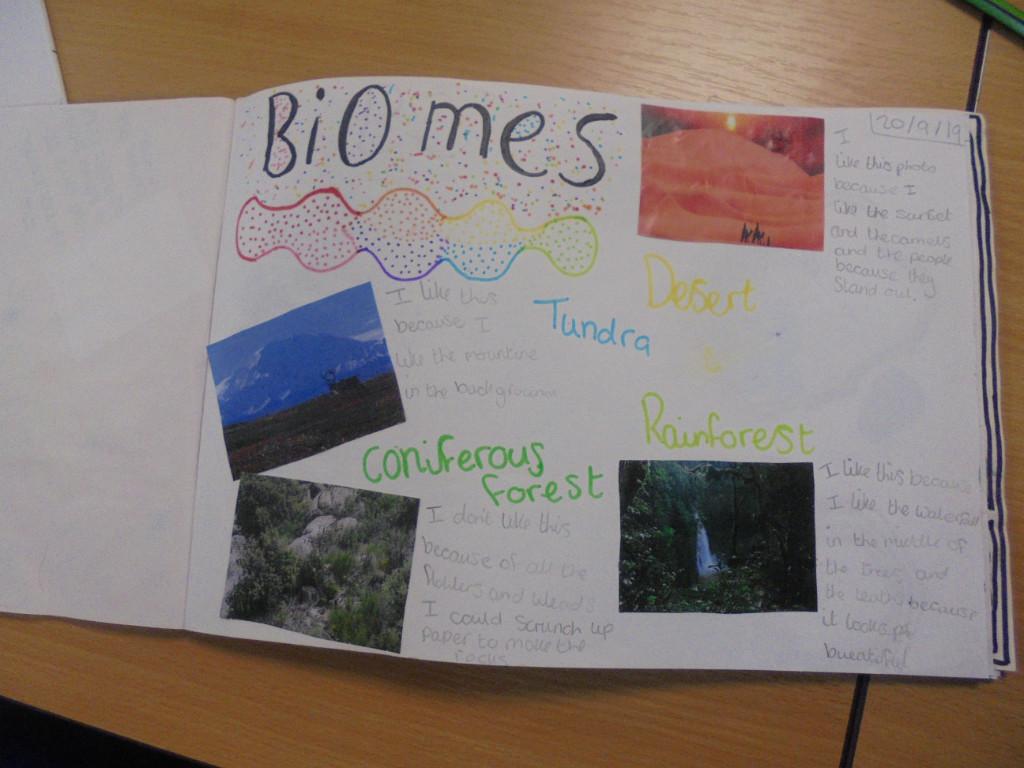 BiOmes
20/9/19
I
like this photo
because I
like the sunset
and the camels
and the people
because they
stand out.
Desert
Tundra
I like this
because I
like the mountine
in the background
Coniferous
forest
I don't like this
because of all the
flowers and weeds
I could scrunch up
paper to make the
rocks
Rainforest
I like this because
I like the waterfall
in the middle of
the trees and
the leafs because
it looks
bueatiful